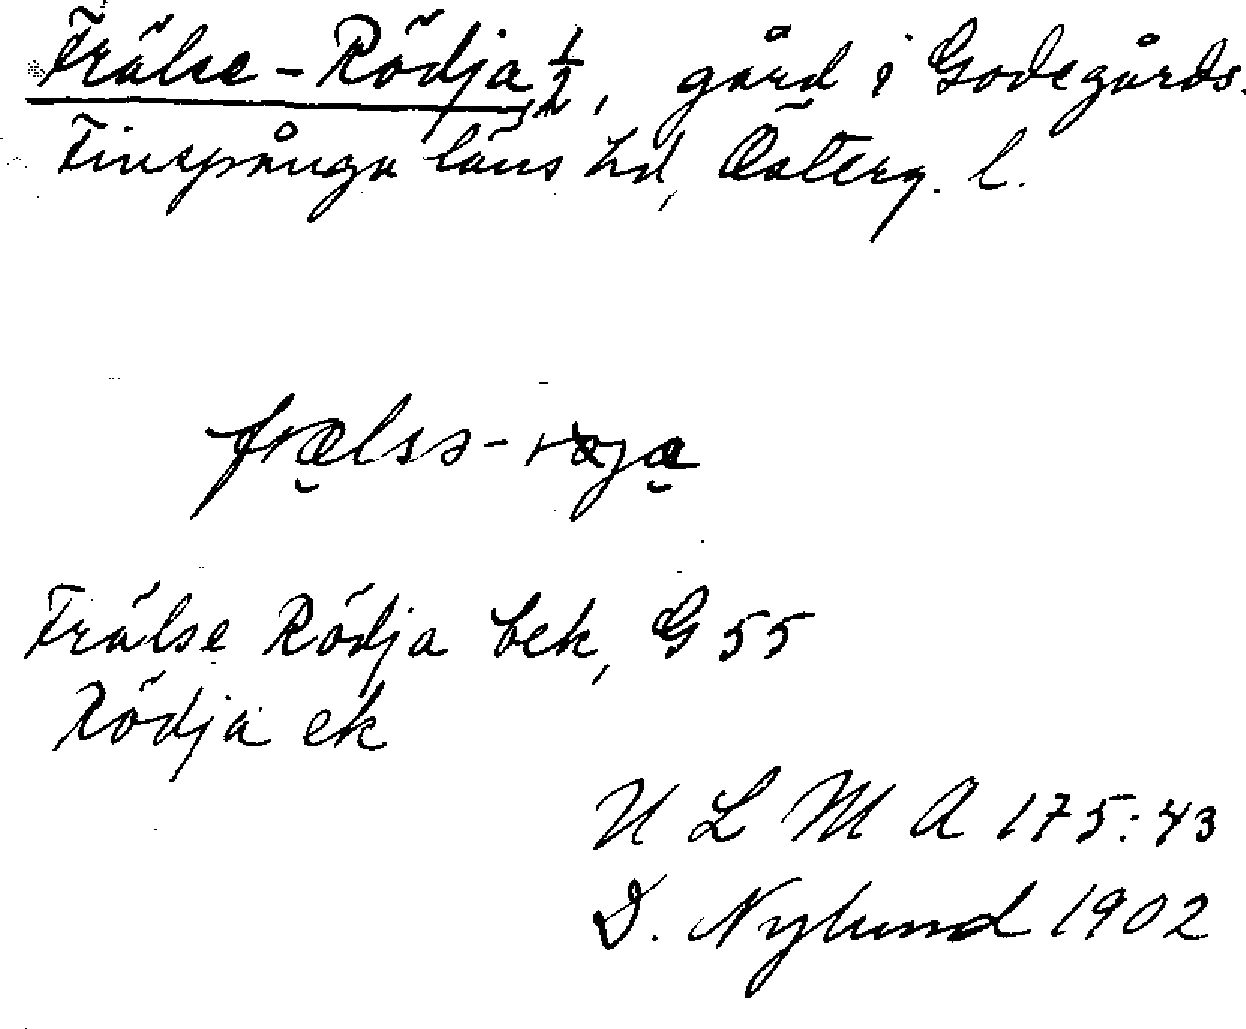 Frälse-Rödja 1/2, gård i Godegårds.
Finspånga läns hd, Österg. l.
Frälse Rödja bek, G 55
Rödja ek
U L M A 175:43
D. Nylund 1902